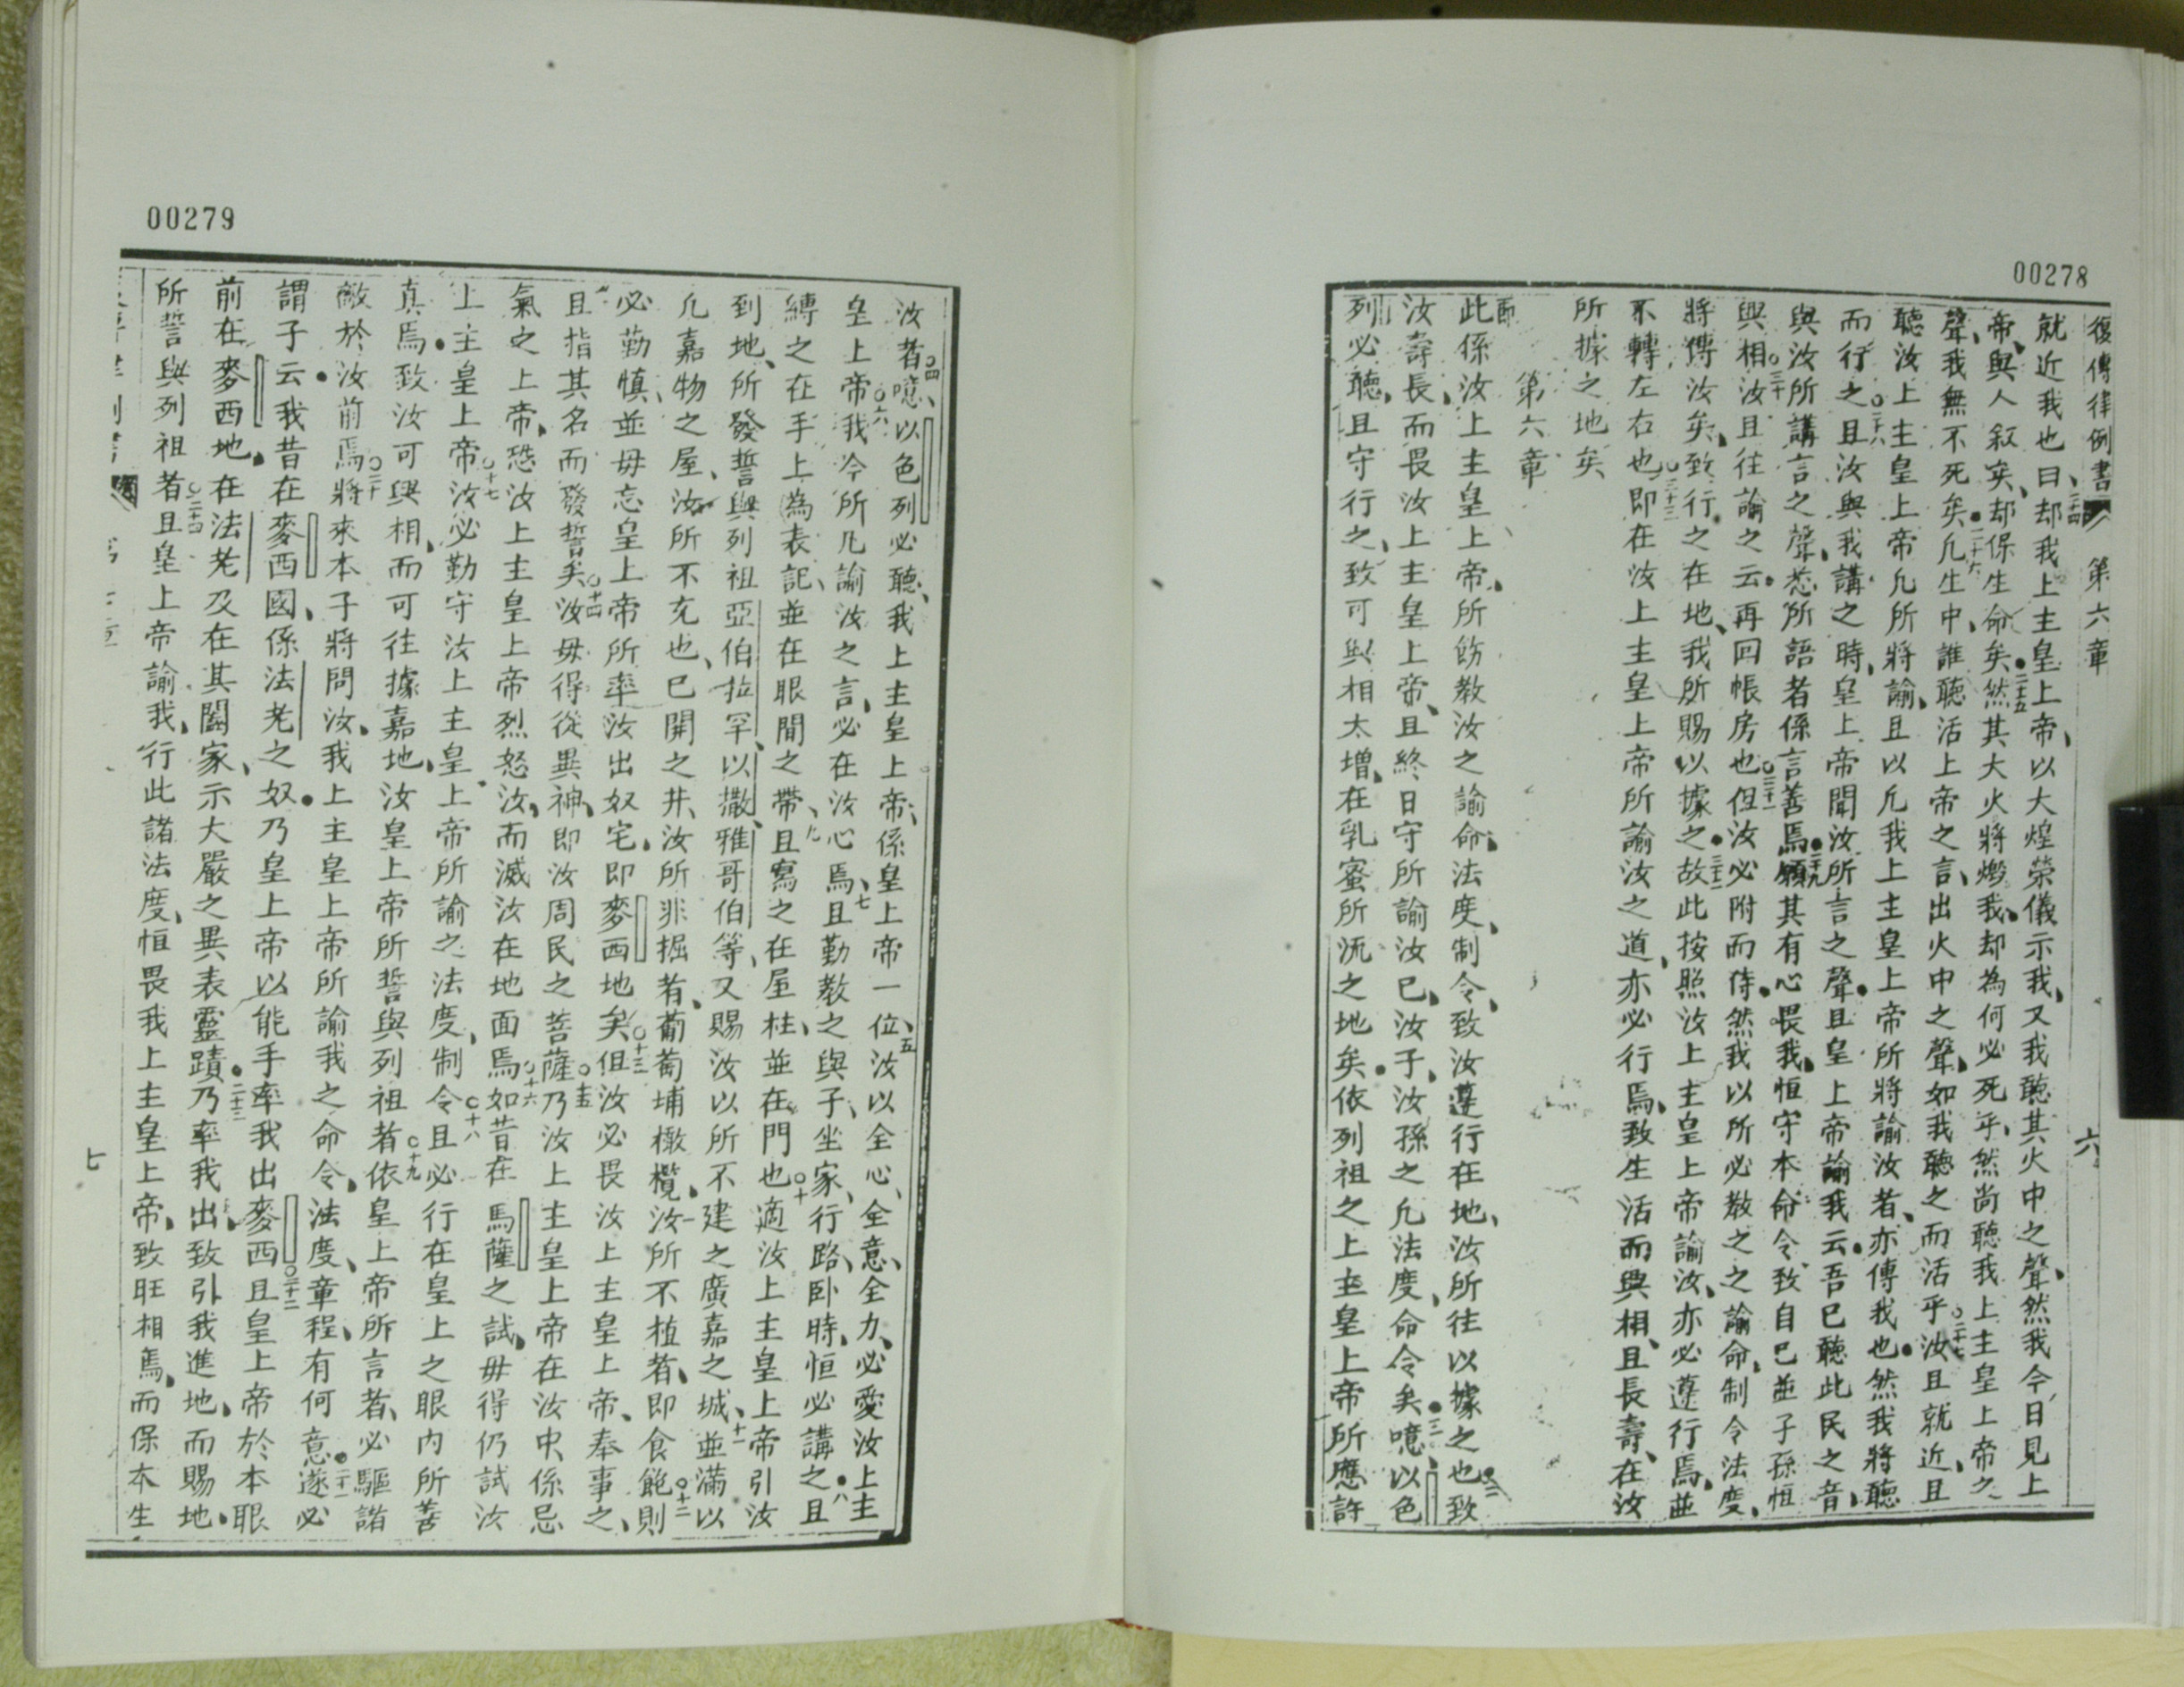 00278
復傳律例書 第六章 六
就近我也曰、二十四却我上主皇上帝、以大煌榮儀示我、又我聽其火中之聲、然我今日見上
帝、與人叙矣、却保生命矣。二十五然其大火將燬我、却為何必死乎、然尚聽我上主皇上帝之
聲、我無不死矣。二十六凡生中、誰聽活上帝之言、出火中之聲、如我聽之而活乎○二十七汝且就近、且
聽汝上主皇上帝凡所將諭、且以凡我上主皇上帝所將諭汝者、亦傳我也。然我將聽
而行之○二十八且汝與我講之時、皇上帝聞汝所言之聲。且皇上帝諭我云。吾已聽此民之音、
與汝所講言之聲、悉所語者係言善焉。二十九願其有心畏我、恒守本命令、致自己並子孫恒
興相○三十汝且往諭之云。再回帳房也○三十一但汝必附而侍。然我以所必教之之諭命、制令法度、
將傳汝矣、致行之在地、我所賜以據之。三十二故此按照汝上主皇上帝諭汝、亦必遵行焉、並
不轉左右也○三十三即在汝上主皇上帝所諭汝之道、亦必行焉、致生活而興相、且長壽、在汝
所據之地矣
第六章
節
此係汝上主皇上帝、所飭教汝之諭命、法度、制令、致汝遵行在地、汝所往以據之也。二致
汝壽長、而畏汝上主皇上帝、且終日守所諭汝已、汝子、汝孫之凡法度、命令矣。三噫、以色
列必聽、且守行之、致可興相太增、在乳蜜所流之地矣。依列祖之上主皇上帝所應許
00279
汝者○四噫、以色列必聽、我上主皇上帝、係皇上帝一位、五汝以全心、全意、全力、必愛汝上主
皇上帝○六我今所凡諭汝之言、必在汝心焉、七且勤教之與子、坐家、行路、卧時、恒必講之。八且
縛之在手上為表記、並在眼間之帶、九且寫之在屋柱、並在門也○十適汝上主皇上帝引汝
到地、所發誓與列祖亞伯拉罕、以撒、雅哥伯等、又賜汝以所不建之廣嘉之城、十一並滿以
凡嘉物之屋、汝所不充也、已開之井、汝所非掘者、葡萄埔橄欖、汝所不植者、即食飽○十二則
必勤慎、並毋忘皇上帝所率汝出奴宅、即麥西地矣○十三但汝必畏汝上主皇上帝、奉事之、
且指其名而發誓矣○十四汝毋得從異神、即汝周民之菩薩○十五乃汝上主皇上帝在汝中、係忌
氣之上帝、恐汝上主皇上帝烈怒汝、而滅汝在地面焉○十六如昔在馬薩之試、毋得仍試汝
上主皇上帝○十七汝必勤守汝上主皇上帝所諭之法度、制令○十八且必行在皇上之眼内所善
真焉。致汝可興相、而可往據嘉地、汝皇上帝所誓與列祖者○十九依皇上帝所言者、必驅諸
敵於汝前焉○二十將來本子將問汝、我上主皇上帝所諭我之命令、法度、章程、有何意。二十一遂必
謂子云。我昔在麥西國、係法老之奴。乃皇上帝以能手率我出麥西○二十二且皇上帝於本眼
前在麥西地、在法老及在其闔家、示大嚴之異表靈蹟。二十三乃率我出、致引我進地、而賜地、
所誓與列祖者○二十四且皇上帝諭我、行此諸法度、恒畏我上主皇上帝、致旺相焉、而保本生
七